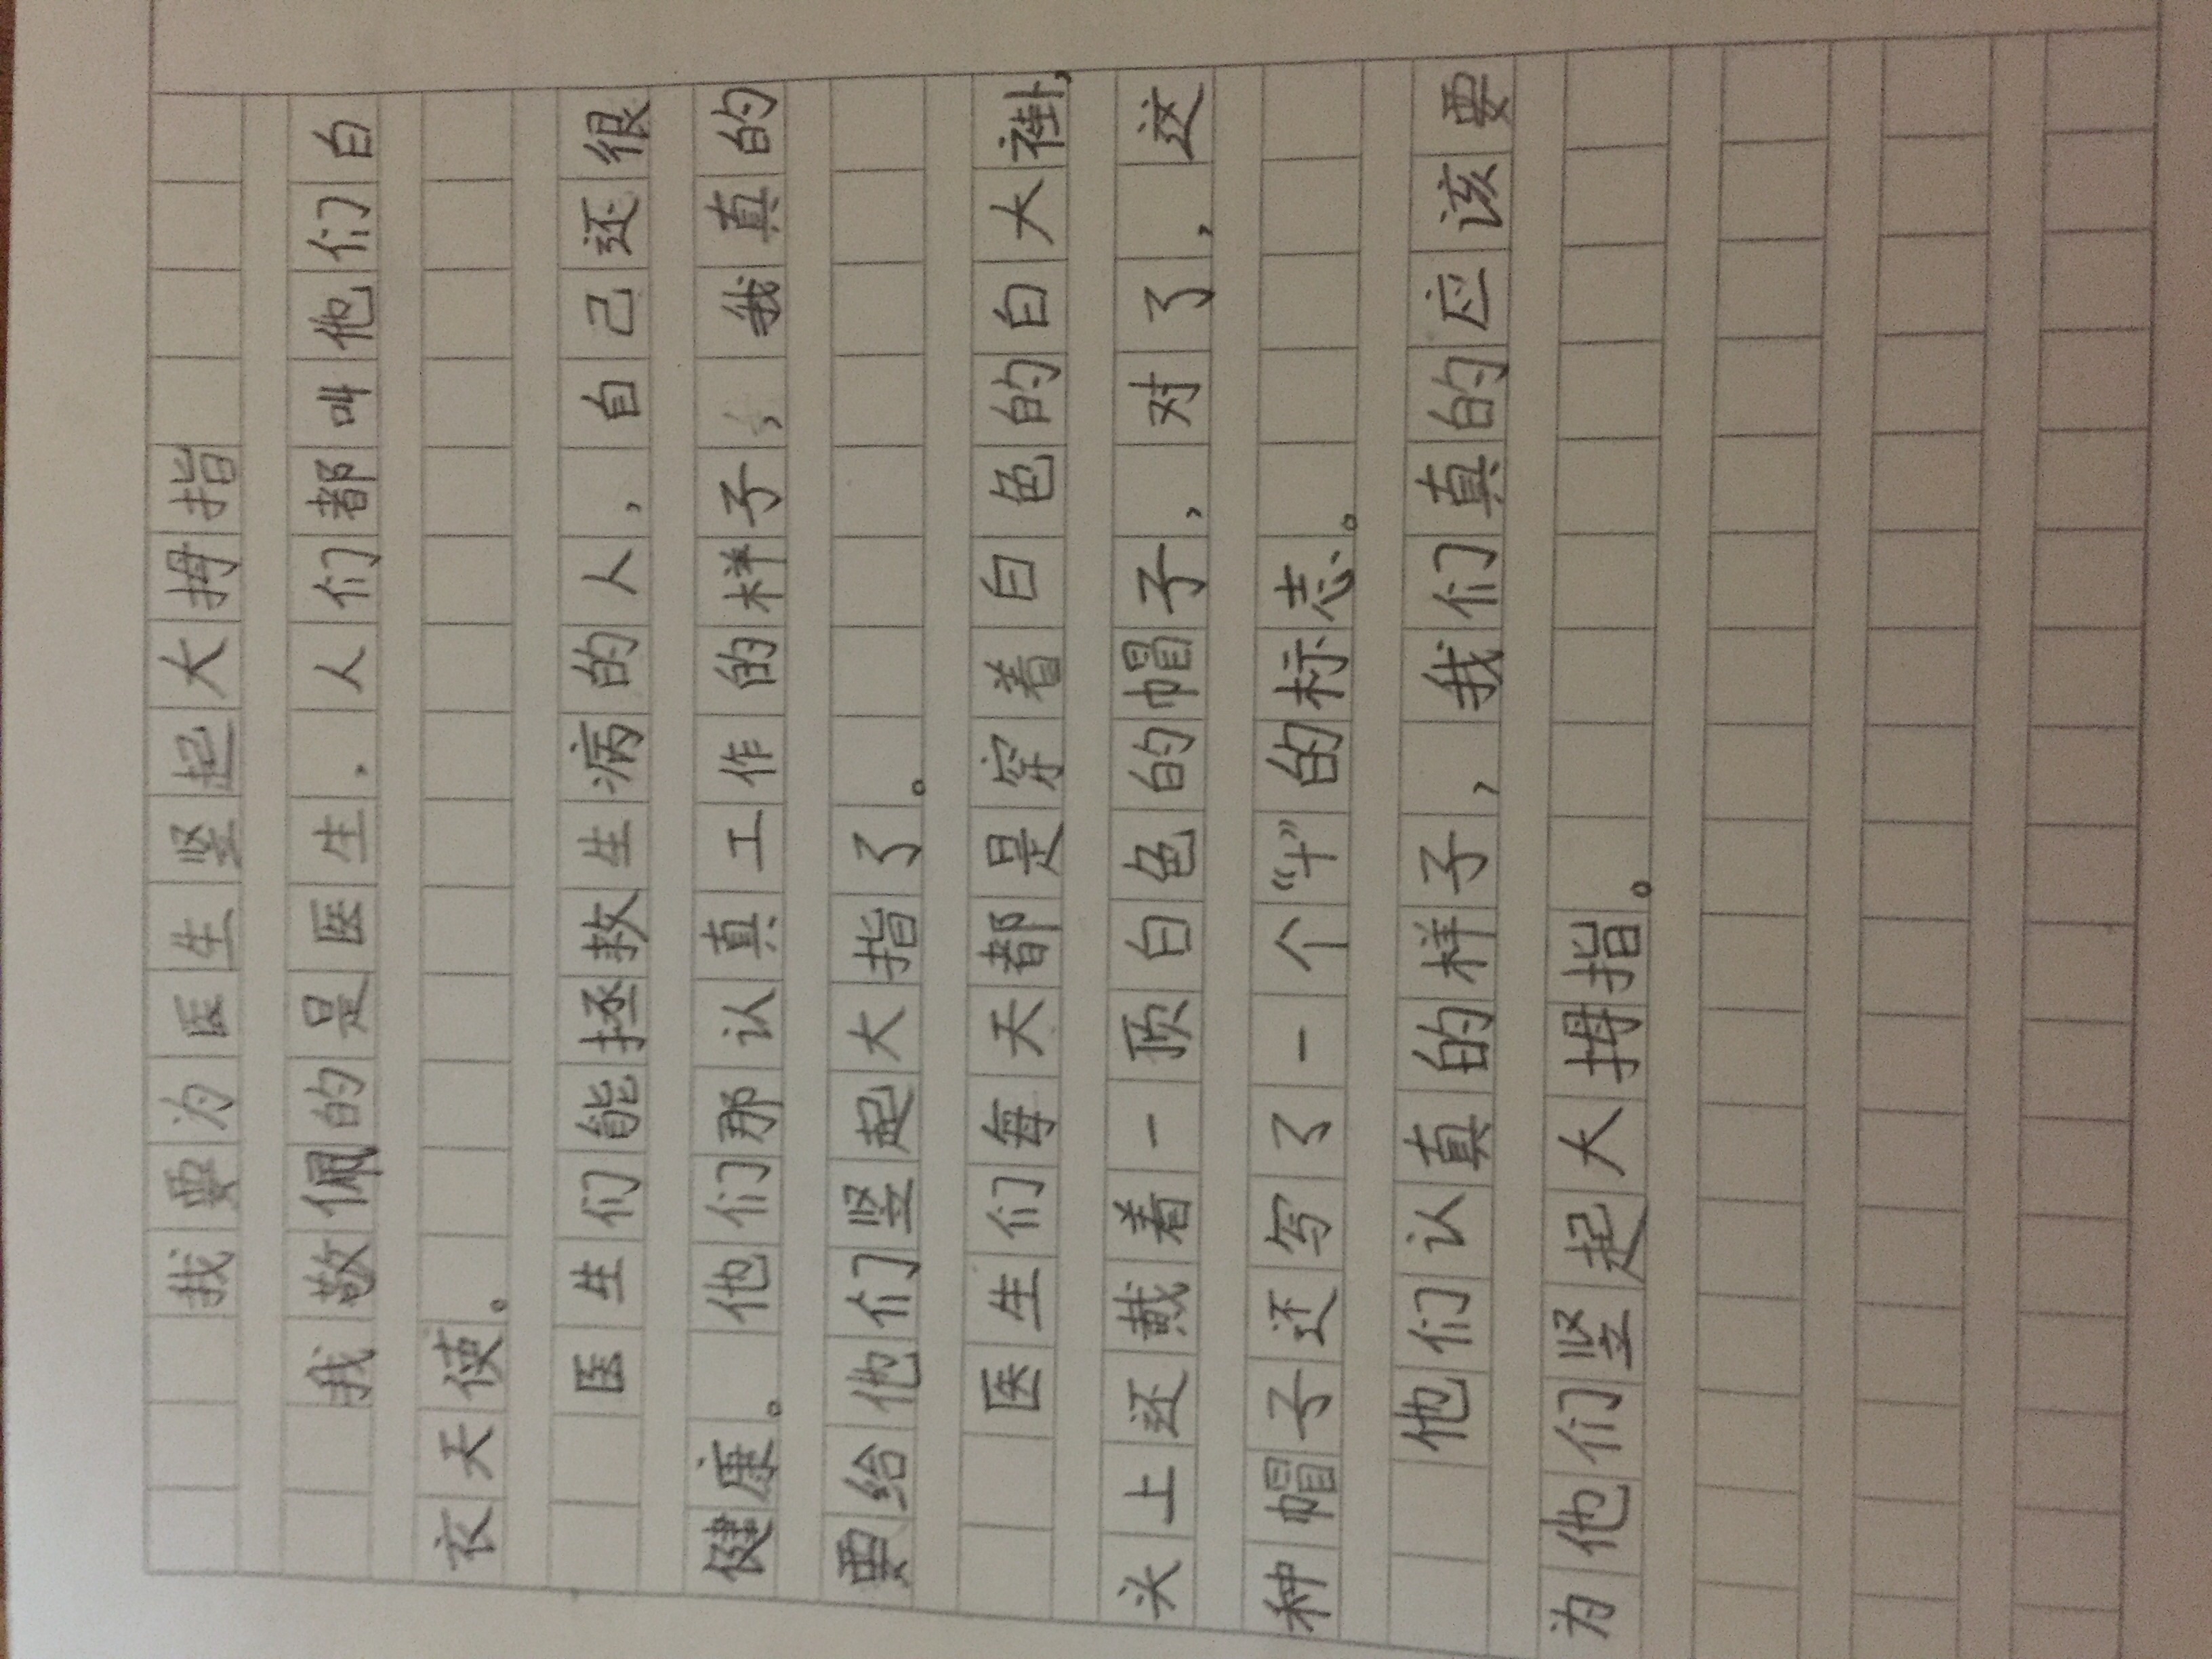 我要为医生竖起大拇指
我敬佩的是医生，人们都叫他们白
衣天使。
医生们能拯救生病的人，自己还很
健康。他们那认真工作的样子，我真的
要给他们竖起大指了。
医生们每天都是穿着白色的白大褂，
头上还戴着一顶白色的帽子，对了，这
种帽子还写了一个“十”的标志。
他们认真的样子，我们真的应该要
为他们竖起大拇指。